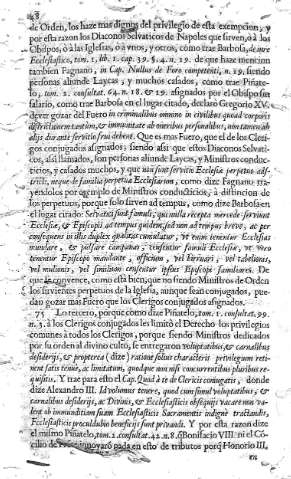 de Orden, los haze mas dignos del privilegio de esta exempcion, y
por esta razon los Diaconos Selvaticos de Napoles que sirven, ò à los
Obispos, ò à las Iglesias, ò à vnos, y otros, como trae Barbosa, de iure
Ecclesiastico, tom. 1. lib. 1. cap. 39. §. 4. n. 19. de que haze mencion
tambien Fagnano, in Cap. Nullus de Foro competenti, n. 19. siendo
personas aliunde Laycas, y muchos casados, como trae Piñate-
lo, tom. 2. consultat. 64. n. 18. & 19. asignados por el Obispo sin
salario, como trae Barbosa en el lugar citado, declarò Gregorio XV.
dever gozar del Fuero in criminalibus omnino in civilibus quoad corporis
districtionem tantùm, & immunitate ab oneribus personalibus, non tamen ab
alijs durante servitio frui debere. Que es mas Fuero, que el de los Cleri-
gos conjugados asignados; siendo asi que estos Diaconos Selvati-
cos, asi llamados, son personas aliunde Laycas, y Ministros conduc-
ticios, y casados muchos, y que non sunt servitio Ecclesiæ perpetuo ads-
cripti, neque de familia perpetua Ecclesiarum, como dize Fagnano tra-
yendolos por exemplo de Ministros conducticios, à distincion de
los perpetuos, porque solo sirven ad tempus, como dize Barbosa en
el lugar citado: Selvatici sunt famuli, qui nulla recepta mercede serviunt
Ecclesiæ, & Episcopis ad tempus quidem, sed non ad tempus breve, ac per
consequens in illis duplex qualitas cumulatur, vt enim tenentur Ecclesias
mundare, & pulsare campanas, censentur famuli Ecclesiæ, vt vero
tenentur Episcopi mandante, officium, vel birruari, vel tabellarij,
vel nuntij, vel similium censentur ipsius Episcopi familiares. De
que se convence, como està bien, que no siendo Ministros de Orden
los sirvientes perpetuos de la Iglesia, aunque sean conjugados, pue-
dan gozar mas Fuero que los Clerigos conjugados asignados.
75 Lo tercero, porque como dize Piñatelo, tom. 1. consultat. 99.
n. 3. à los Clerigos conjugados les limitò el Derecho los privilegios
comunes à todos los Clerigos, porque siendo Ministros dedicados
por su orden al divino culto, se entregaron voluptatibus, & carnalibus
desiderijs, & proptereà (dize) ratione solius characteris privilegium reti-
nent satis tenue, ac limitatum, quodque non nisi concurrentibus pluribus re-
quisitis. Y trae para esto el Cap. Quod à te de Clericis conjugatis, donde
dize Alexandro III. Id volumus tenere, quod cum simul voluptatibus, &
carnalibus desiderijs, ac Divinis, & Ecclesiasticis obsequijs vacare non va-
leat ab immunditiam suam Ecclesiasticis Sacramentis indignè tractandis,
Ecclesiasticis proculdubio beneficijs sunt privandi. Y por esta razon dize
el mismo Piñatelo, tom. 2. consultat. 42. n. 8. q Bonifacio VIII. ni el Cõ-
cilio de innovarò nada en esto de tributos porq Honorio III,
en